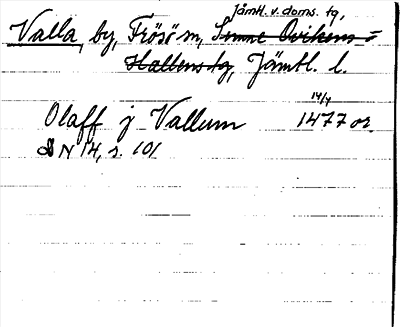 Jämtl. v. doms. tg,
Valla, by, Frösö sn, Sunne Ovikens o
Hallens tg, Jämtl. l.
14/4
Olaff j Vallum 1477 or.
N 14, s. 101